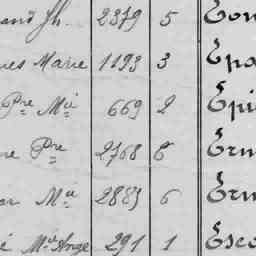 and Jh. 2379 5 Cou
ues Marie 1193 3 Epa
Pre Mie 669 2 Epi
re Pre 2768 6 Ern
Ma 2885 6 Ern
é Mie Ange 291 1 Esco